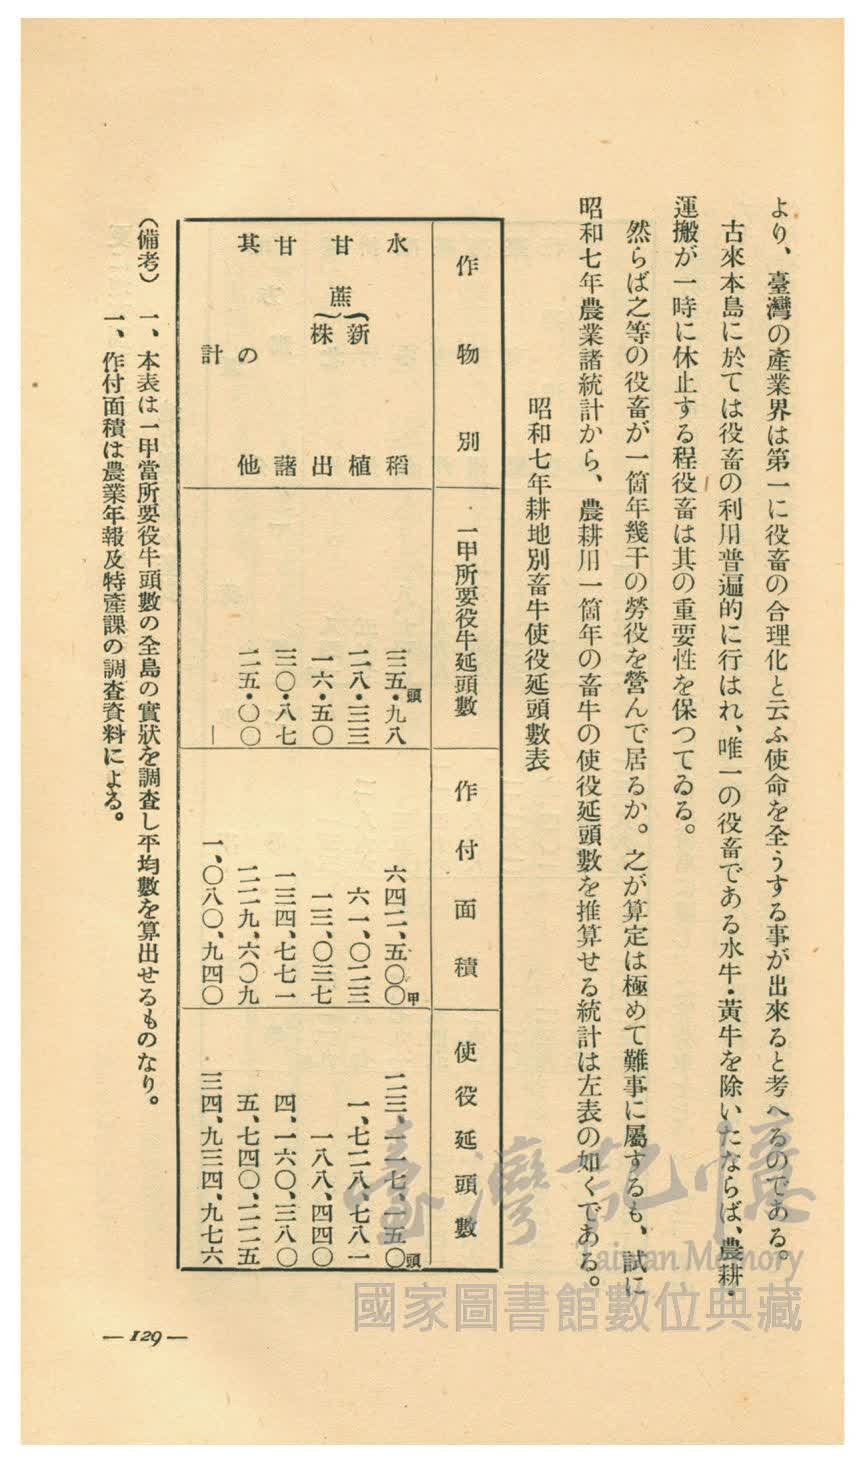 より、臺灣の產業界は第一に役畜の合理化と云ふ使命を全うする事が出來ると考へるのである。
古來本島に於ては役畜の利用普遍的に行はれ、唯一の役畜である水牛・黃牛を除いたならば、農耕・
運搬が一時に休止する程役畜は其の重要性を保つてゐる。
然らば之等の役畜が一箇年幾干の勞役を營んで居るか。之が算定は極めて難事に屬するも、試に
昭和七年農業諸統計から、農耕用一箇年の畜牛の使役延頭數を推算せる統計は左表の如くである。
昭和七年耕地別畜牛使役延頭數表
作物別 一甲所要役牛延頭數 作付面積 使役延頭數
水稻 三五・九八頭 六四二、五〇〇甲 二三、一一七、一五〇頭
甘蔗{新植 二八・三三 六一、〇二三 一、七二八、七八一
株出 一六・五〇 一三、〇三七 一八八、四四〇
甘藷 三〇・八七 一三四、七七一 四、一六〇、三八〇
其の他 二五・〇〇 二二九、六〇九 五、七四〇、二二五
計 ― 一、〇八〇、九四〇 三四、九三四、九七六
(備考) 一、本表は一甲當所要役牛頭數の全島の實狀を調査し平均數を算出せるものなり。
一、作付面積は農業年報及特產課の調査資料による。
— 129 —
臺灣記憶
Taiwan Memory
國家圖書館數位典藏